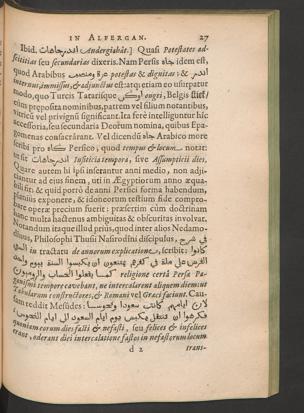 IN ALFERGAN. 27
Ibid. اندرجاهات Andergiahât.] Quasi Potestates ad-
scititias seu secundarias dixeris. Nam Persis جاه idem est,
quod Arabibus عزة ومنصب potestas & dignitas: & اندر
internus, immissus, & adjunctus est: atq; etiam eo usurpatur
modo, quo Turcis Tatarisque اوكى ougei, Belgis stief/
præposita nominibus, patrem vel filium notantibus,
vitricũ vel privignũ significant. Ita ferè intelliguntur hîc
accessoria, seu secundaria Deorum nomina, quibus Epa-
gomenas consecrârant. Vel dicendũ جاه Arabico more
scribi pro كاه Persico, quod tempus & locum notat:
ut sit اندرجاهات Insititia tempora, sive Assumptitii dies.
Quare autem hi ipsi inserantur anni medio, non adji-
ciantur ad ejus finem, uti in Ægyptiorum anno æqua-
bili fit: & quid porrò de anni Persici forma habendum,
planiùs exponere, & idoneorum testium fide compro-
bare operæ precium fuerit: præsertim cùm doctrinam
hanc multa hactenus ambiguitas & obscuritas involvat.
Notandum itaque illud prius, quod inter alios Nedamo-
Philosophi Thusii Nasirodini discipulus, في شرح
in tractatu de annorum explicatione, scribit: كانوا
religione certâ Persæ Pa-
ganismi tempore cavebant, ne intercalarent aliquem diem: ut
Tabularum constructores; & Romani vel Græci faciunt. Cau-
sam reddit Mesüdes:
quoniam eorum dies fasti & nefasti, seu felices & infelices
erant, oderant diei intercalatione fastos in nefastorum locum
d 2 trans-